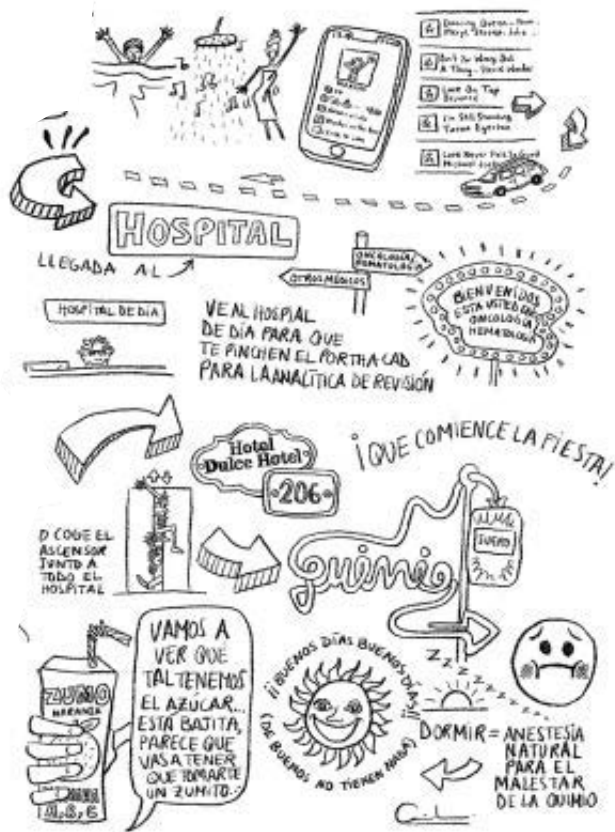 HOSPITAL
LLEGADA AL
ONCOLOGÍA/
HEMATOLOGÍA
OTROS MÉDICOS
BIENVENIDOS
ESTA USTED EN
ONCOLOGÍA
HEMATOLOGÍA
HOSPITAL DE DÍA
VE AL HOSPIAL
DE DÍA PARA QUE
TE PINCHEN EL PORTHACAD
PARA LA ANALÍTICA DE REVISIÓN
Hotel
Dulce Hotel
206
¡QUE COMIENCE LA FIESTA!
SUERO
O COGE EL
ASCENSOR
JUNTO A
TODO EL
HOSPITAL
Quimio
ZUMO
NARANJA
VAMOS A
VER QUÉ
TAL TENEMOS
EL AZÚCAR...
ESTÁ BAJITA,
PARECE QUE
VAS A TENER
QUE TOMARTE
UN ZUMITO...
¡¡BUENOS DÍAS BUENOS DÍAS!!
(DE BUENOS NO TIENEN NADA)
ZZZZZZZZZ
DORMIR = ANESTESIA
NATURAL
PARA EL
MALESTAR
DE LA QUIMIO